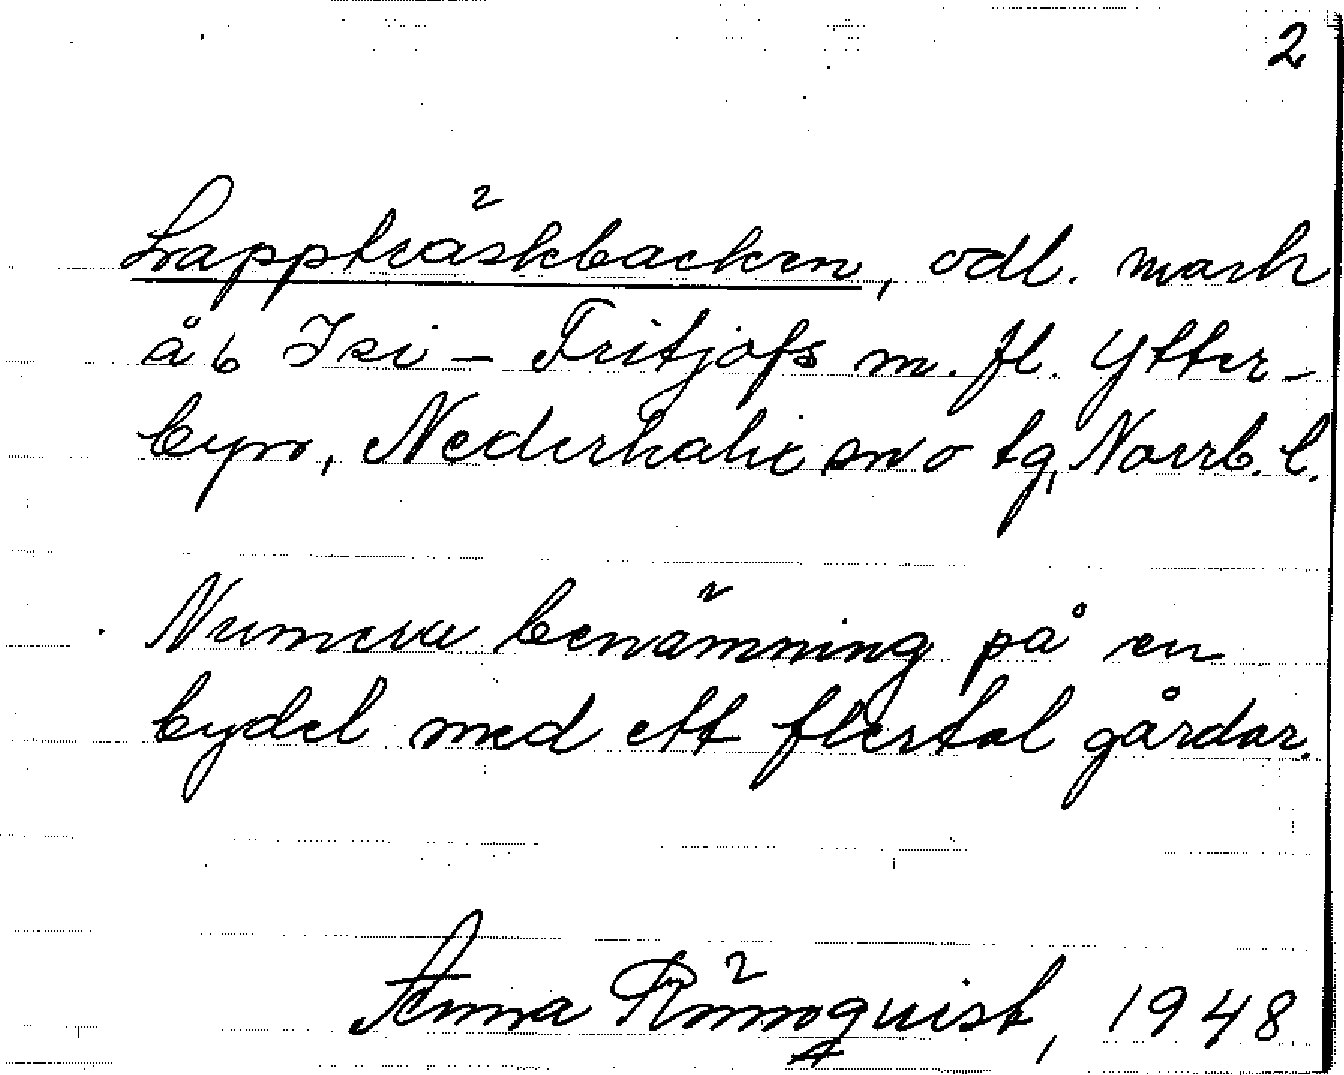 2
Lappträskbacken, odl. mark
å 6 Isi - Fritjofs m. fl. Ytter-
byn, Nederkalix sn o tg, Norrb. l.
Numera benämning på en
bydel med ett flertal gårdar.
Anna Rönnquist, 1948